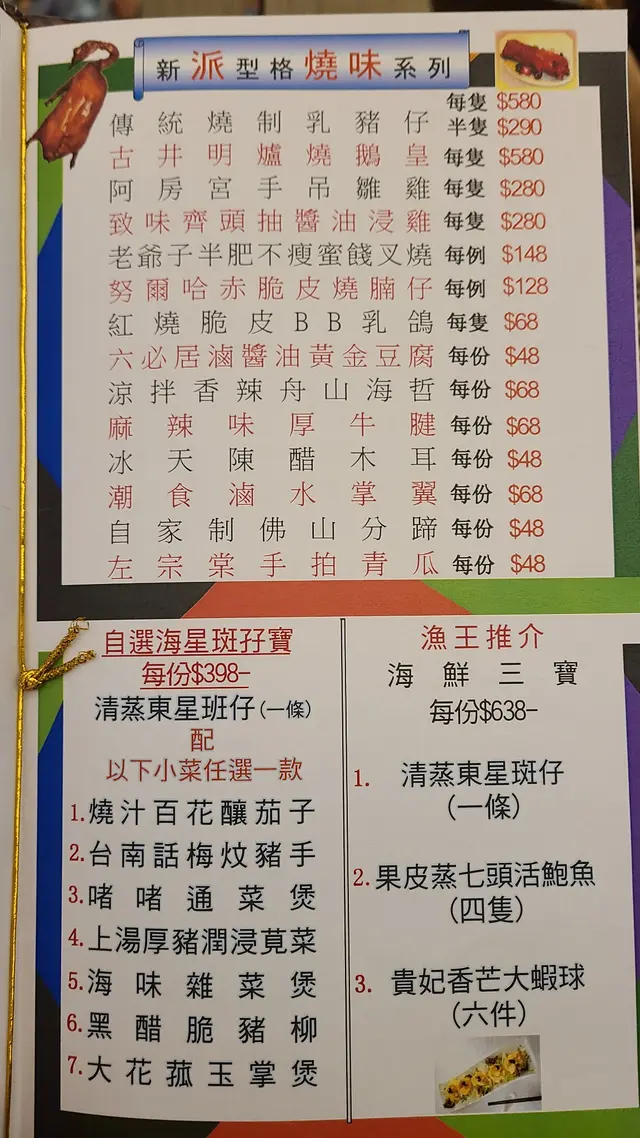 新派型格燒味系列
傳統燒制乳豬仔 每隻 $580
半隻 $290
古井明爐燒鵝皇 每隻 $580
阿房宮手吊雛雞 每隻 $280
致味齊頭抽醬油浸雞 每隻 $280
老爺子半肥不瘦蜜餞叉燒 每例 $148
努爾哈赤脆皮燒腩仔 每例 $128
紅燒脆皮BB乳鴿 每隻 $68
六必居滷醬油黃金豆腐 每份 $48
涼拌香辣舟山海哲 每份 $68
麻辣味厚牛腱 每份 $68
冰天陳醋木耳 每份 $48
潮食滷水掌翼 每份 $68
自家制佛山分蹄 每份 $48
左宗棠手拍青瓜 每份 $48
自選海星斑孖寶
每份$398-
清蒸東星班仔(一條)
配
以下小菜任選一款
1.燒汁百花釀茄子
2.台南話梅炆豬手
3.啫啫通菜煲
4.上湯厚豬潤浸莧菜
5.海味雜菜煲
6.黑醋脆豬柳
7.大花菰玉掌煲
漁王推介
海鮮三寶
每份$638-
1. 清蒸東星斑仔
(一條)
2.果皮蒸七頭活鮑魚
(四隻)
3. 貴妃香芒大蝦球
(六件)